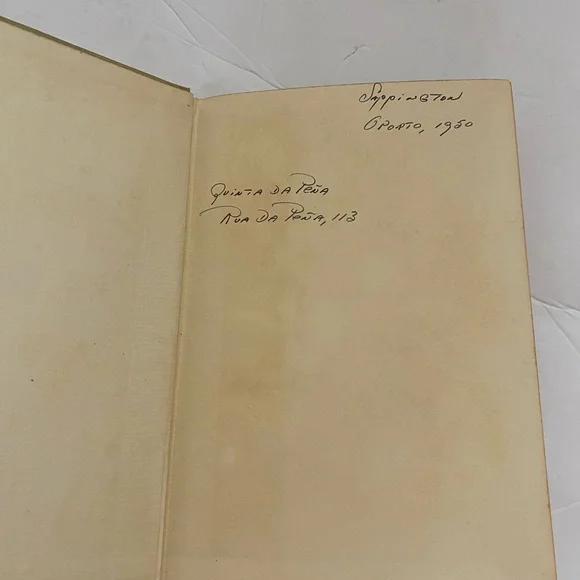 Sappington
Oporto, 1950
Quinta da Peña
Rua da Peña, 113